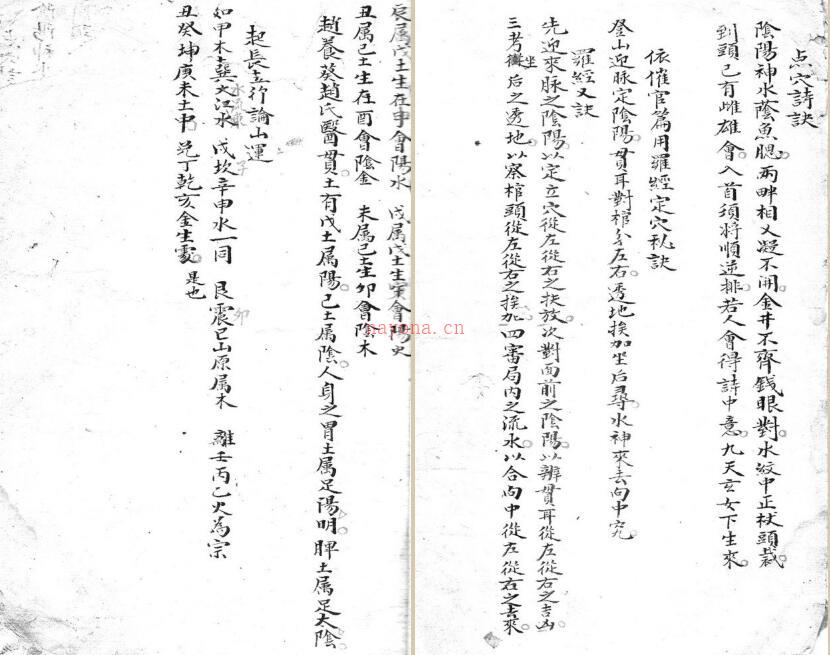 点穴詩訣
陰陽神水蔭魚腮兩畔相乂凝不開金井不齊錢眼對水紋中正杖頭裁
到頭已有雌雄會入首須將順逆排若人會得詩中意九天玄女下生來
依催官篇用羅經定穴秘訣
登山迎脉定陰陽貫耳對棺分左右透地挨加坐后尋水神來去向中究
羅經又訣
先迎來脉之陰陽以定立穴從左從右之扶放次對面前之陰陽以辨貫耳從左從右之吉凶
三考坐后之透地以察棺頭從左從右之挨加四審局內之流水以合向中從左從右之去來
辰属戊土生在申會陽水 戌属戊土生寅會陽火
丑属己土生在酉會陰金 未属己土生卯會陰木
趙養葵趙氏醫貫土有戊土属陽己土属陰人身之胃土属足陽明脾土属足太陰
起長五行論山運
如甲木龔大江水 戌坎辛申水一同 艮震巳山原属木 離壬丙乙火為宗
丑癸坤庚未土中 兌丁乾亥金生處 是也
nayona.cn